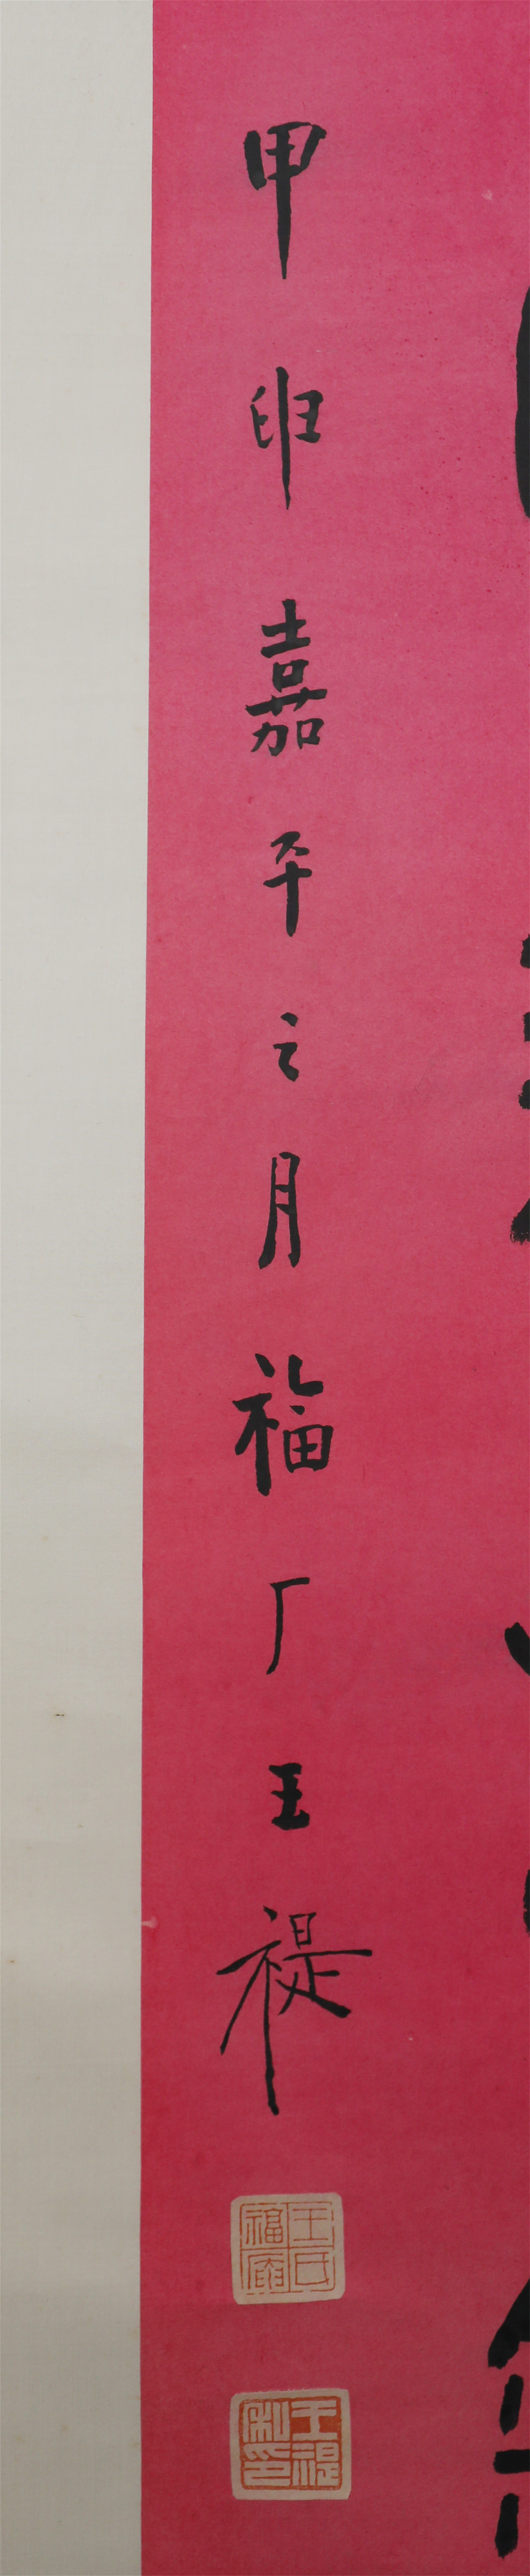 甲申嘉平之月福厂王禔
王氏福庵
王禔私印